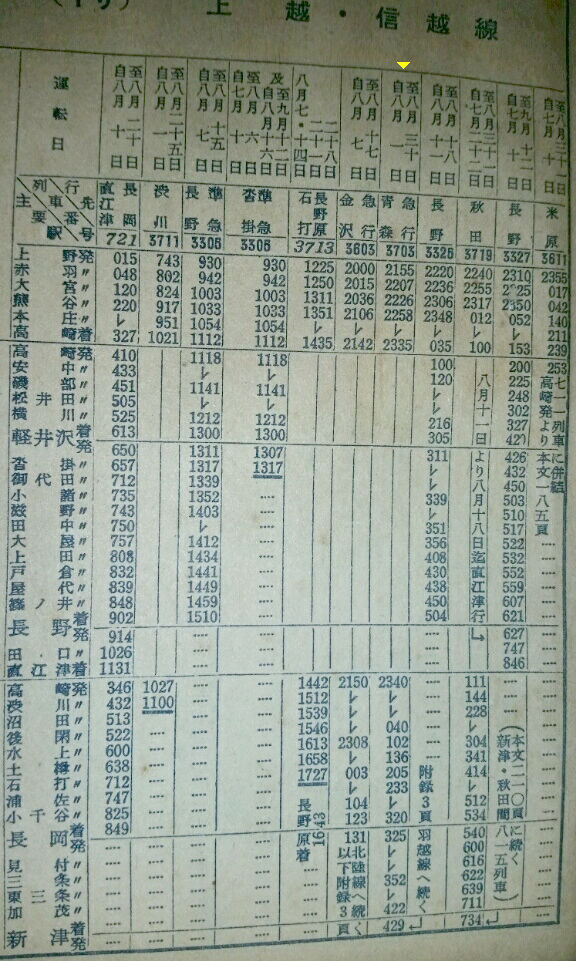 上越・信越線
運転日 自八月十日 至八月二十日 自八月一日 至八月二十五日 自八月七日 至八月十五日 自七月十日 至八月六日 及 自八月十六日 至九月十二日 八月七・十四 二十一 二十八日 自八月十日 至八月十七日 自八月一日 至八月三十日 自八月十一日 至八月十八日 自七月二十一日 自七月十日 至九月十二日
列車番号 行先 主要駅 長岡 直江津 渋川 準急 長野 準急 沓掛 長野原 石打 急行 金沢 急行 青森 長野 秋田 長野 米原
721 3711 3305 3306 3713 3603 3703 3325 3719 3327 3611
上野発 015 743 930 930 1225 2000 2155 2220 2240 2310 2355
赤羽〃 048 802 942 942 1250 2015 2207 2236 2255 017
大宮〃 120 824 1003 1003 1311 2036 2226 2306 2317 2350 042
熊谷〃 220 917 1033 1033 1351 2106 2258 2348 012 052 140
本庄〃 レ 951 1054 1054 レ レ レ レ レ レ 211
高崎着 327 1021 1112 1112 1435 2142 2335 035 100 153 239
高崎発 410 1118 1118 100 200 253
安中〃 433 レ レ 120 225
磯部〃 451 1141 1141 248
松井田〃 505 レ レ 302
横川〃 525 1212 1212 216 327
軽井沢着 613 1300 1300 305 427
発 650 1311 1307 311 426
沓掛〃 657 1317 1317 レ 432
御代田〃 712 1339 レ 450
小諸〃 735 1352 339 503
滋野〃 743 1403 レ 510
田中〃 750 レ 351 517
大屋〃 757 1412 356 522
上田〃 808 1434 408 532
戸倉〃 832 1441 430 552
屋代〃 839 1449 438 559
篠ノ井〃 848 1459 450 607
長野着 902 1510 504 621
発 914 627
田口〃 1026 747
直江津着 1131 846
八月十一日より八月十八日迄直江津行
七一一列車に併結
高崎発より本文一八五頁
高崎発 346 1027 1442 2150 2340 111
渋川〃 432 1100 1512 レ レ 144
沼田〃 513 1539 レ レ 228
後閑〃 522 1546 レ 040 レ
水上〃 600 1613 2308 102 304
土樽〃 638 1658 レ 136 341
石打〃 712 1727 003 205 414
浦佐〃 747 レ 233 レ
小千谷〃 825 104 レ 512
長岡着 849 123 320 534
発 131 325 540
見付〃 レ 600
三条〃 レ 616
東三条〃 352 622
加茂〃 レ 639
422 711
新津着 429 734
長野原着 1643
以下北陸線へ続く
附録3頁
附録3頁羽越線へ続く
(本文二一〇頁
新津・秋田間
八一五列車)
に続く